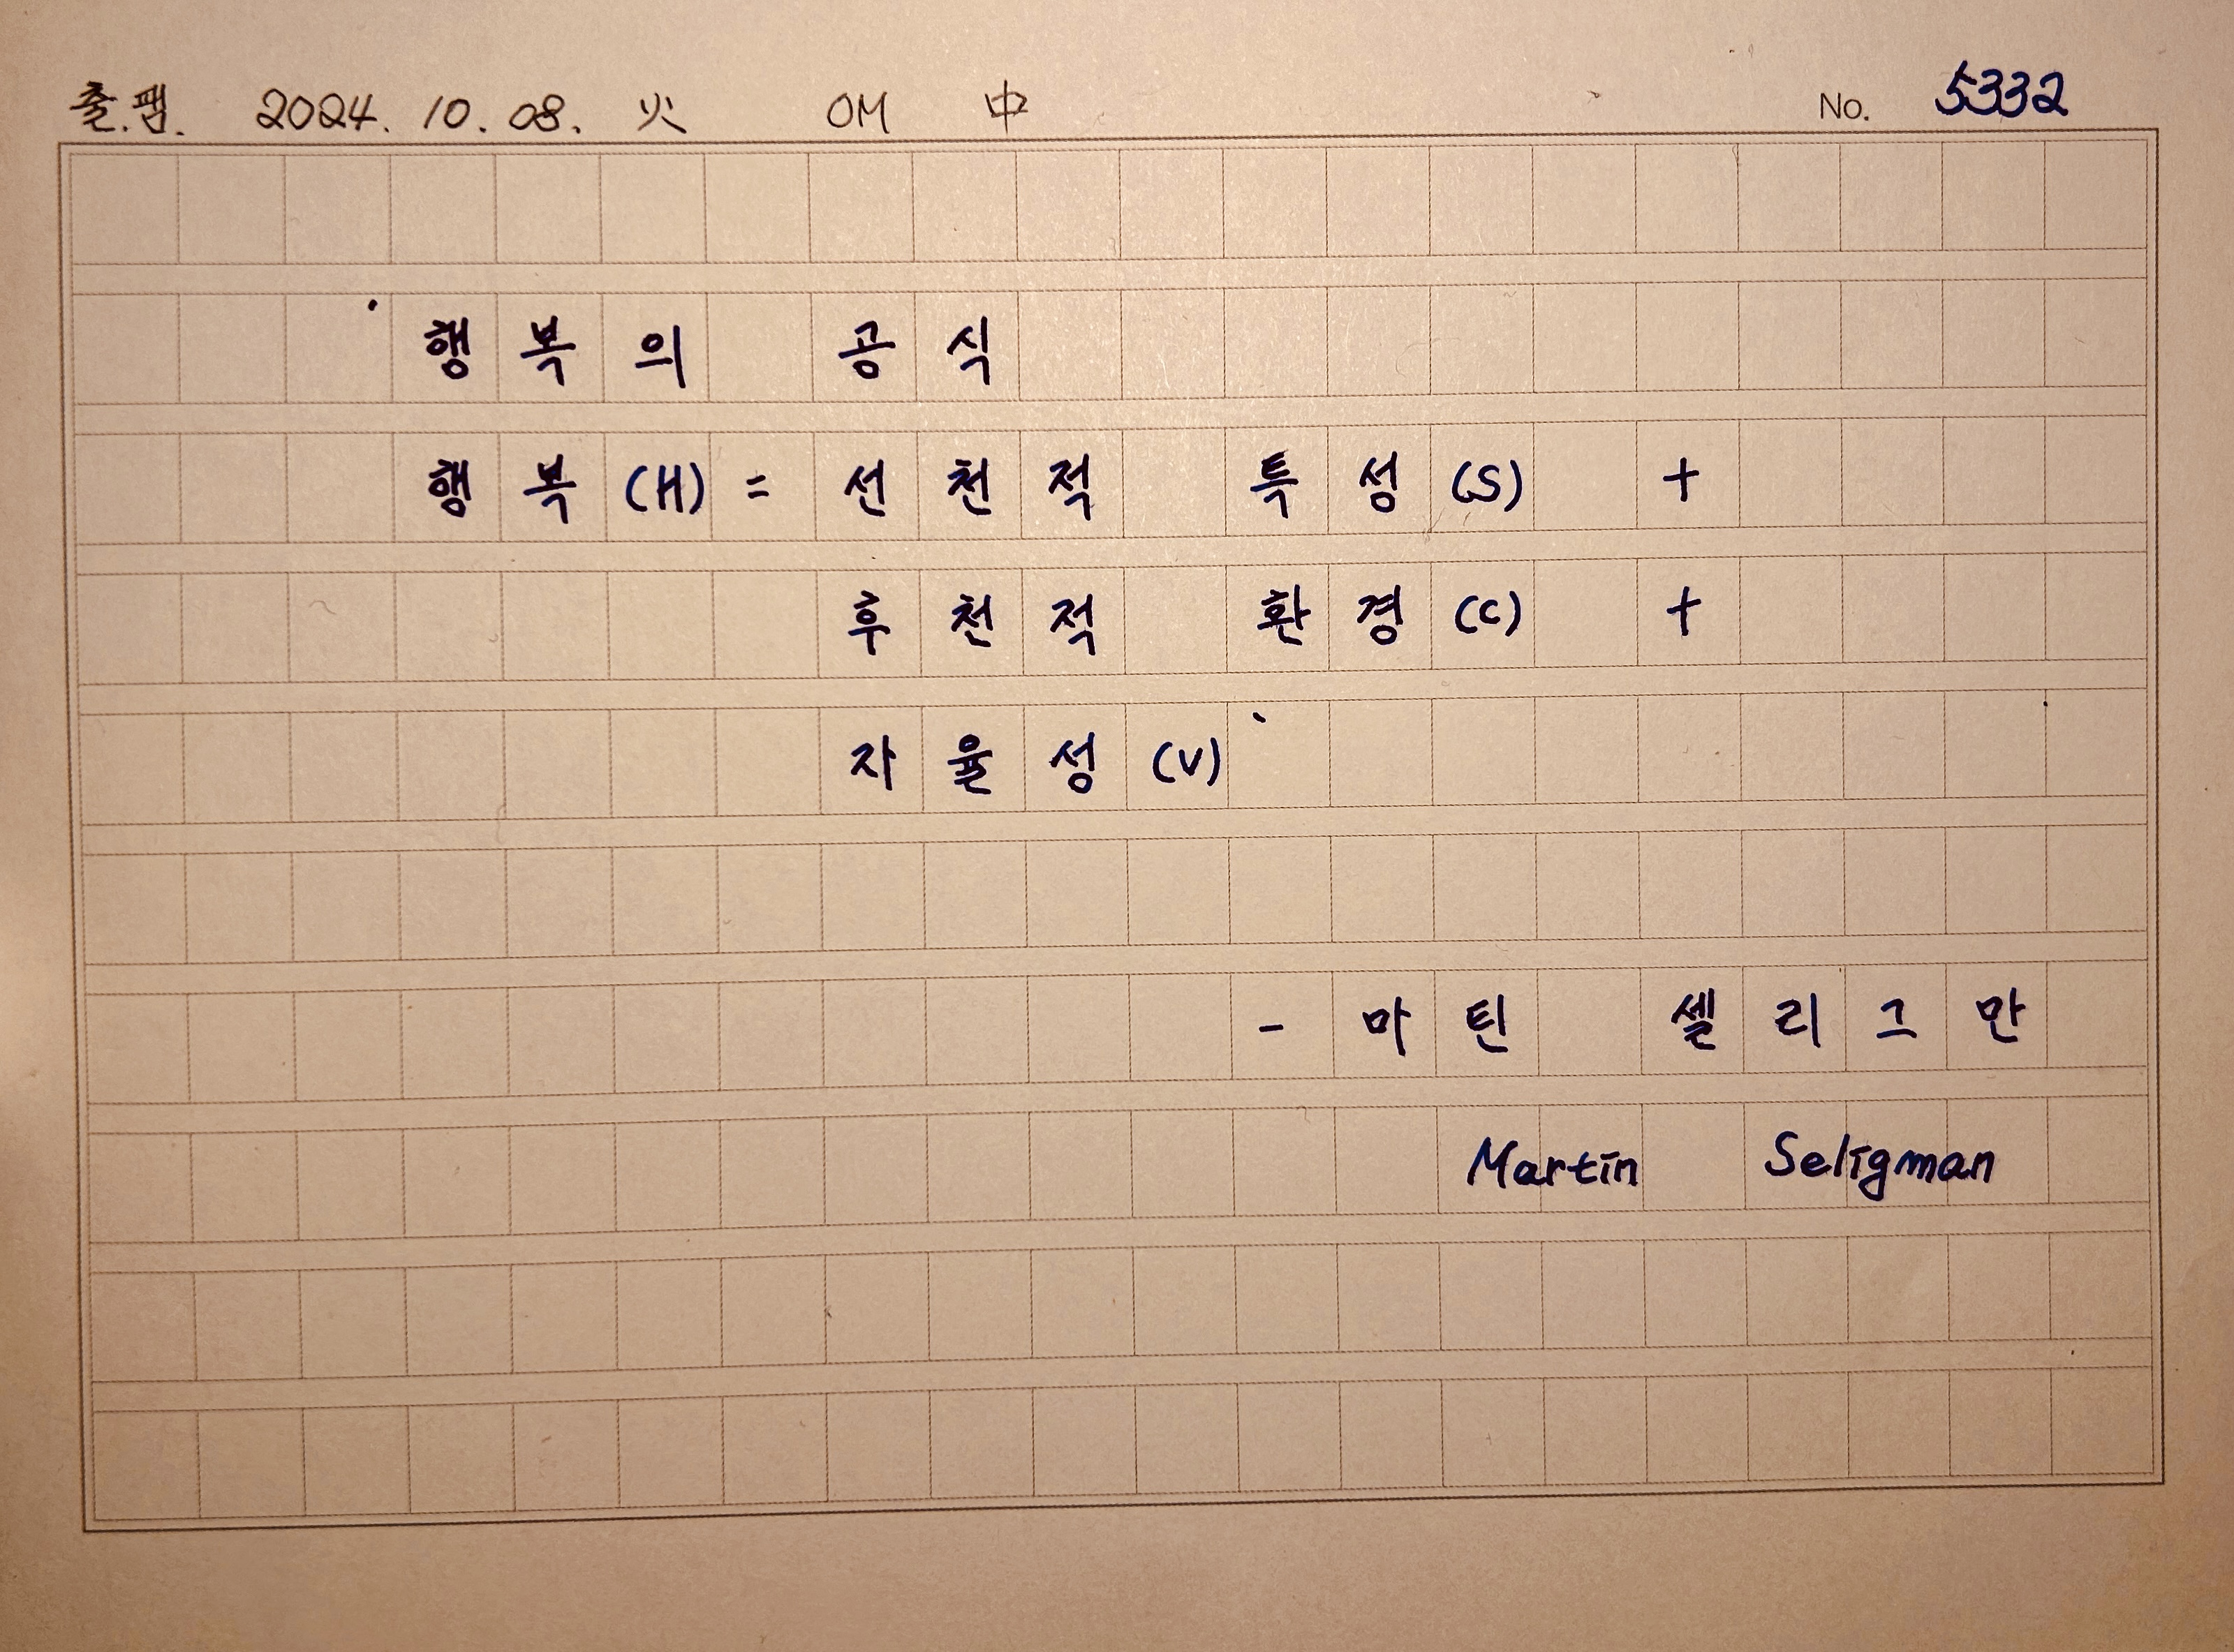 출.팸. 2024. 10. 08. 火 OM 中 No. 5332
행복의 공식
행복(H) = 선천적 특성(S) +
후천적 환경(C) +
자율성(V)
- 마틴 셀리그만
Martin Seligman